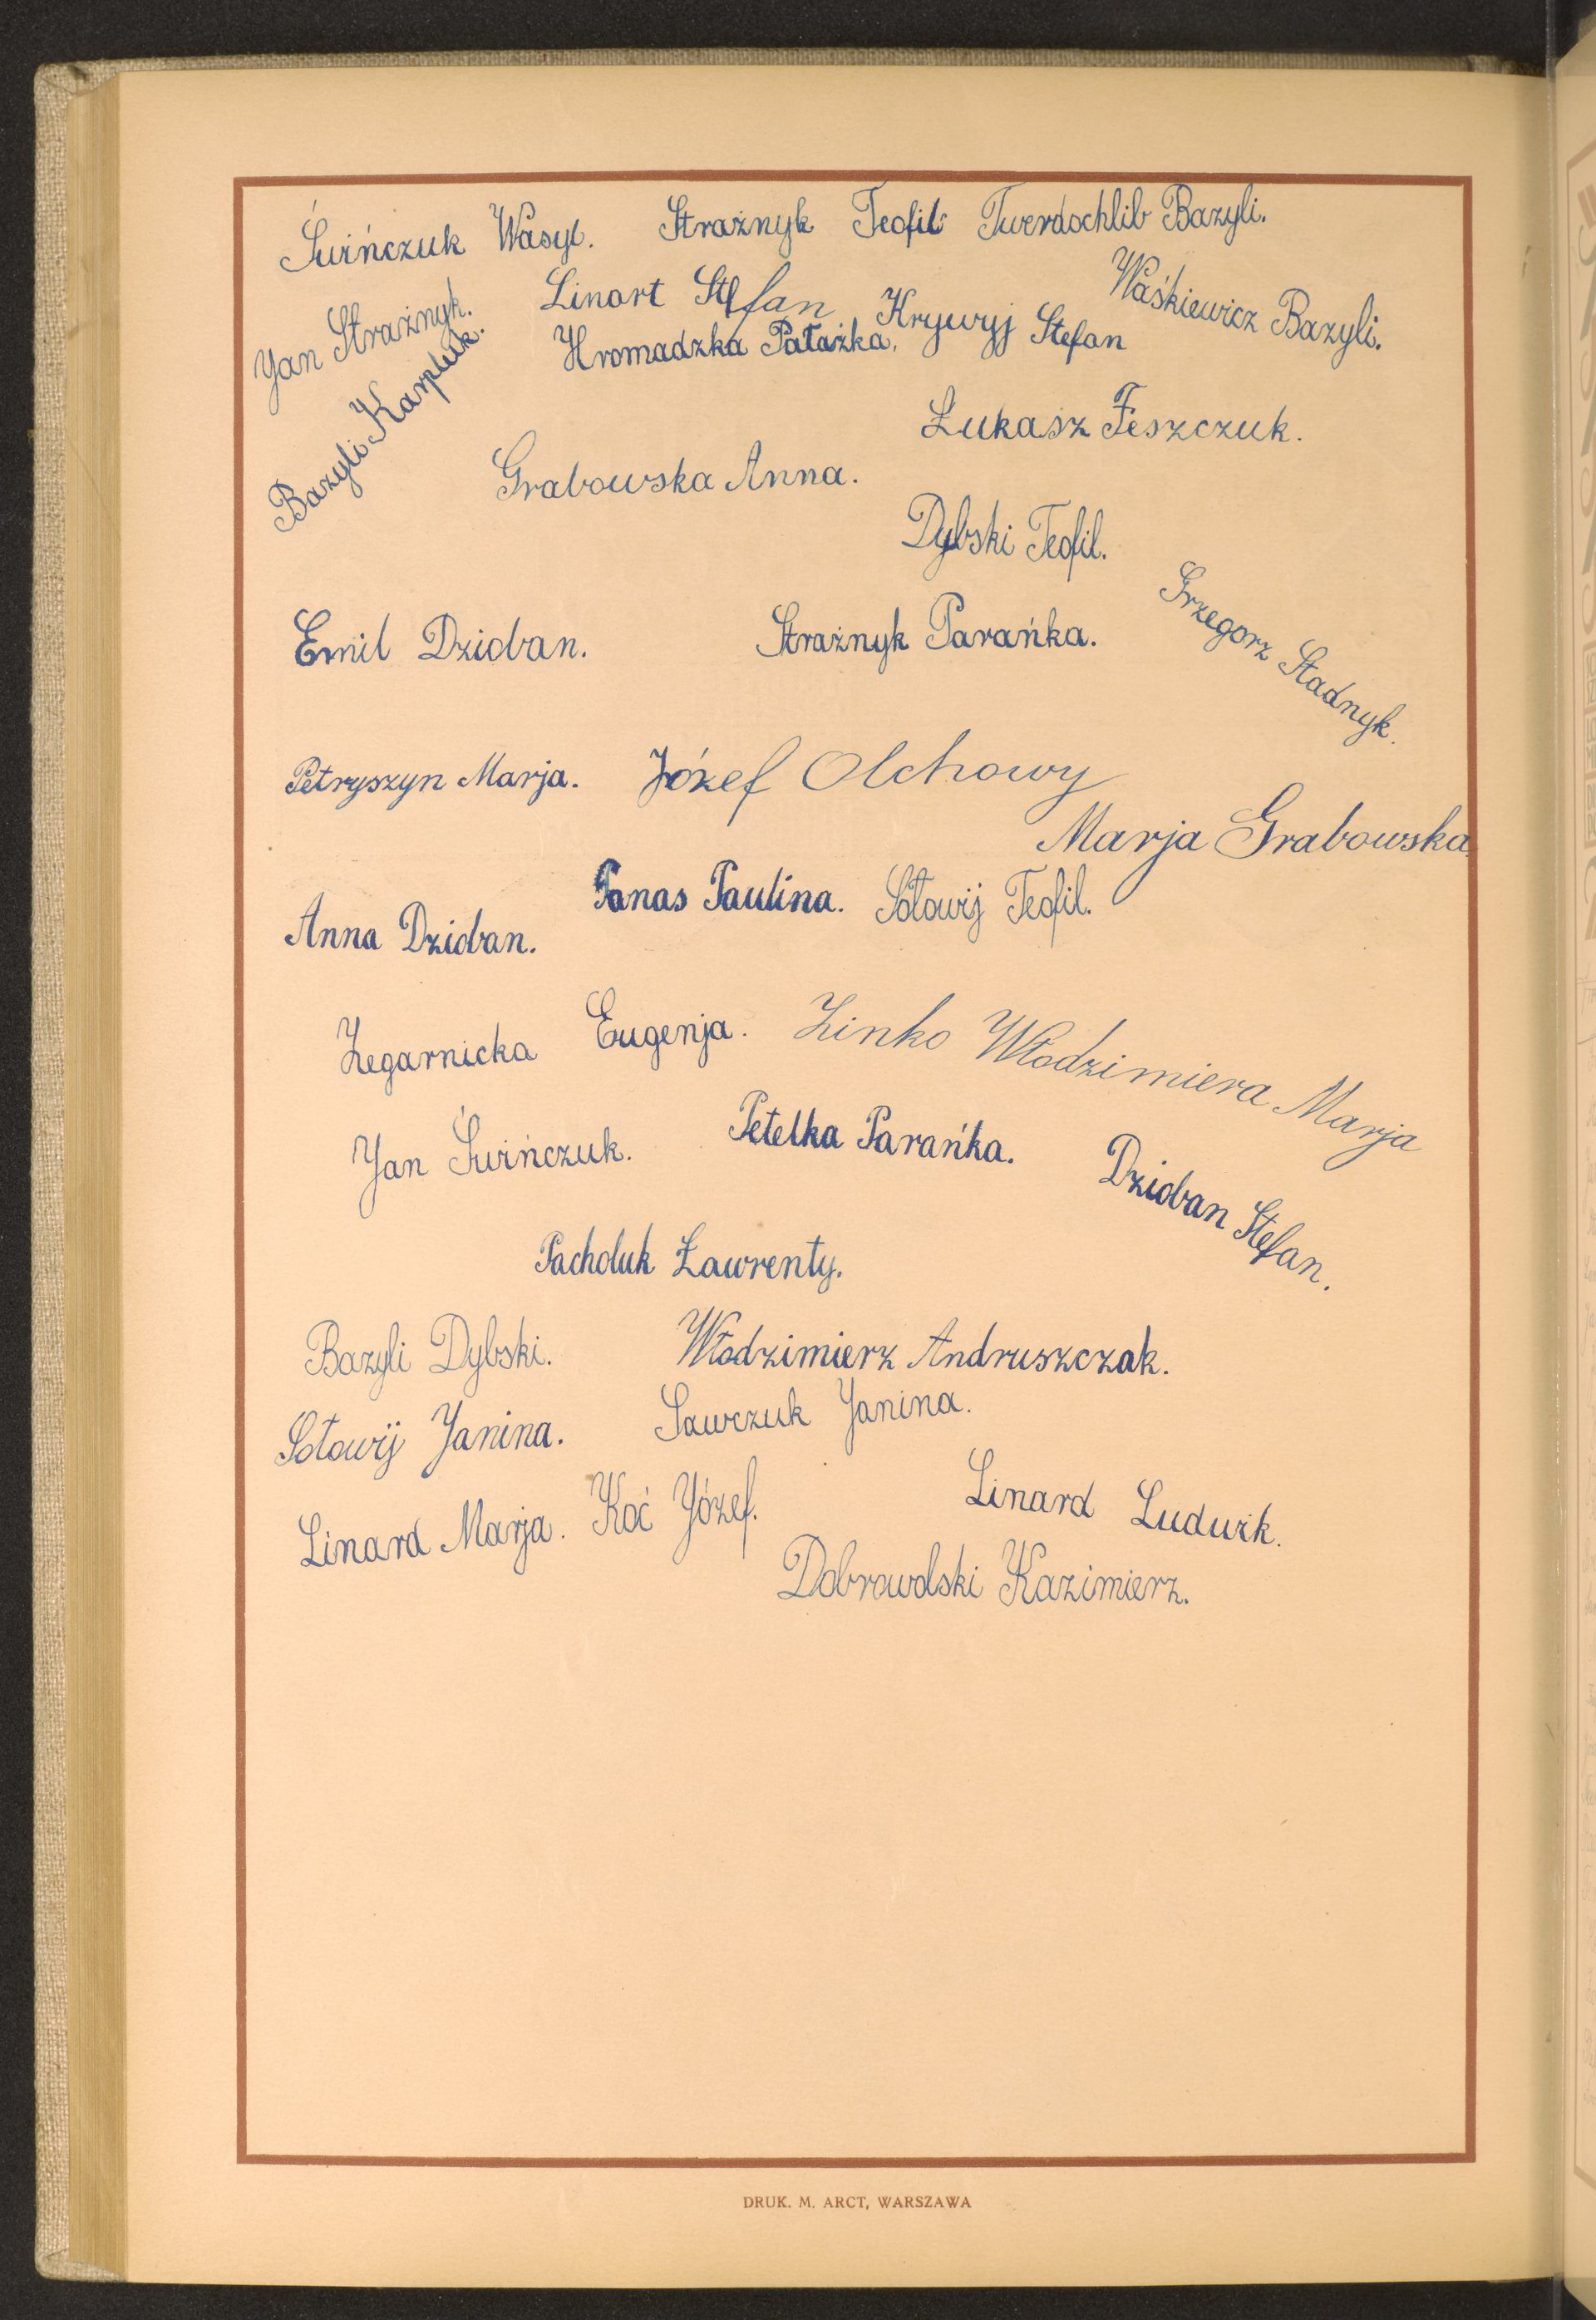 Świńczuk Wasyl. Strażnyk Teofil Twerdochlib Bazyli.
Jan Strażnyk. Linart Stefan Krywyj Stefan Waśkiewicz Bazyli.
Hromadzka Pałażka.
Bazyli Karpluk.
Łukasz Feszczuk.
Grabowska Anna.
Dybski Teofil.
Grzegorz Stadnyk.
Emil Dzioban. Strażnyk Parańka.
Petryszyn Marja. Józef Olchowy
Marja Grabowska.
Panas Paulina. Sołowij Teofil.
Anna Dzioban.
Zegarnicka Eugenja. Zinko Włodzimiera Marja
Jan Świńczuk. Petelka Parańka. Dzioban Stefan.
Pacholuk Ławrenty.
Bazyli Dybski. Włodzimierz Andruszczak.
Sołowij Janina. Sawczuk Janina.
Linard Marja. Koć Józef. Linard Ludwik.
Dobrowolski Kazimierz.
DRUK. M. ARCT, WARSZAWA